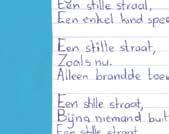 Een stille straat,
Een enkel kind spee
Een stille straat,
Zoals nu.
Alleen brandde toen
Een stille straat,
Bijna niemand buit
Een stille straat